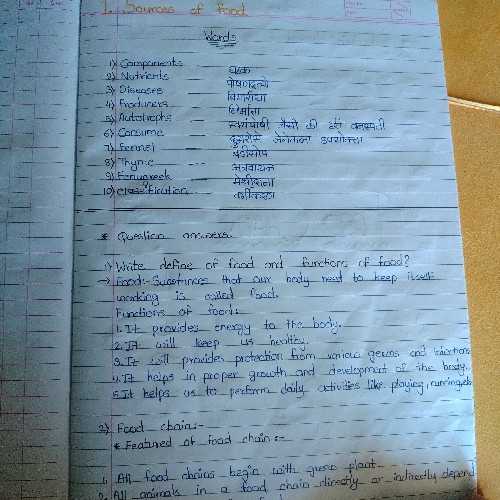 1. Sources of food
Words
1) Components — घटक
2) Nutrients — पोषकतत्वे
3) Diseases — बिमारीया
4) Producers — निर्माता
5) Autotrophs — स्वयंपोषी जैसे की हरी वनस्पती
6) Consume
7) Fennel — बडीसोप
8) Thyme — अजवायन
9) Fenugreek — मेथीदाना
10) classification — वर्गीकरण
* Question answers
1) Write define of food and functions of food?
→ Food:- Substances that our body need to keep itself
working is called food.
Functions of food:
1. It provides energy to the body.
2. It will keep us healthy.
3. It will provides protection from various germs and infections
4. It helps in proper growth and development of the body.
5. It helps us to perform daily activities like playing, running, etc
2) Food chain:-
* Featured of food chain:-
1. All food chains begin with green plant.
2. All animals in a food chain directly or indirectly depend